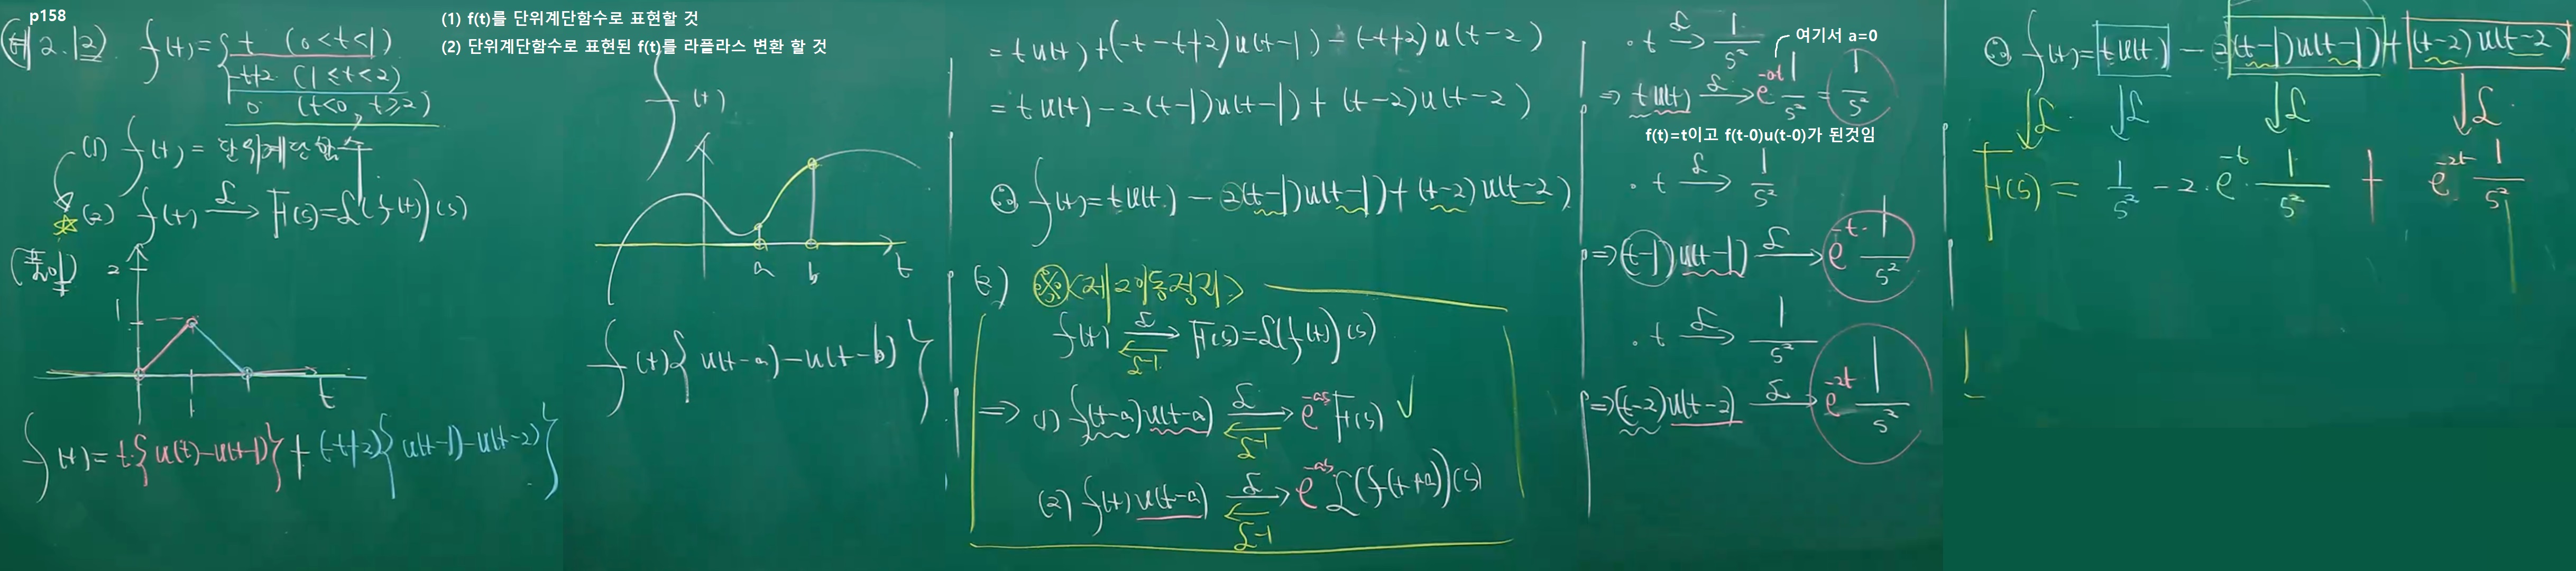 p158
예 2.12) f(t)= { t (0<t<1)
-t+2 (1≤t<2)
0 (t<0, t≥2)
(1) f(t)를 단위계단함수로 표현할 것
(2) 단위계단함수로 표현된 f(t)를 라플라스 변환 할 것
(1) f(t) = 단위계단함수
☆(2) f(t) ℒ→ F(s)=ℒ(f(t))(s)
(풀이)
2
1
1
t
f(t)= t·{u(t)-u(t-1)} + (-t+2){u(t-1)-u(t-2)}
f(t)
a b t
f(t){u(t-a)-u(t-b)}
= t u(t) + (-t-t+2)u(t-1) - (-t+2)u(t-2)
= t u(t) - 2(t-1)u(t-1) + (t-2)u(t-2)
∴ f(t)= t u(t) - 2(t-1)u(t-1) + (t-2)u(t-2)
(2) ※<제2이동정리>
f(t) ℒ→ ←ℒ⁻¹ F(s)=ℒ(f(t))(s)
⇒ (1) f(t-a)u(t-a) ℒ→ ←ℒ⁻¹ e^{-as}F(s) ✓
(2) f(t)u(t-a) ℒ→ ←ℒ⁻¹ e^{-as}ℒ(f(t+a))(s)
· t ℒ→ 1/s²
여기서 a=0
⇒ t u(t) ℒ→ e^{-0t} 1/s² = 1/s²
f(t)=t이고 f(t-0)u(t-0)가 된것임
· t ℒ→ 1/s²
⇒ (t-1)u(t-1) ℒ→ e^{-t}·1/s²
· t ℒ→ 1/s²
⇒ (t-2)u(t-2) ℒ→ e^{-2t} 1/s²
∴ f(t)= t u(t) - 2(t-1)u(t-1) + (t-2)u(t-2)
↓ℒ ↓ℒ ↓ℒ ↓ℒ
F(s) = 1/s² - 2·e^{-t}·1/s² + e^{-2t} 1/s²